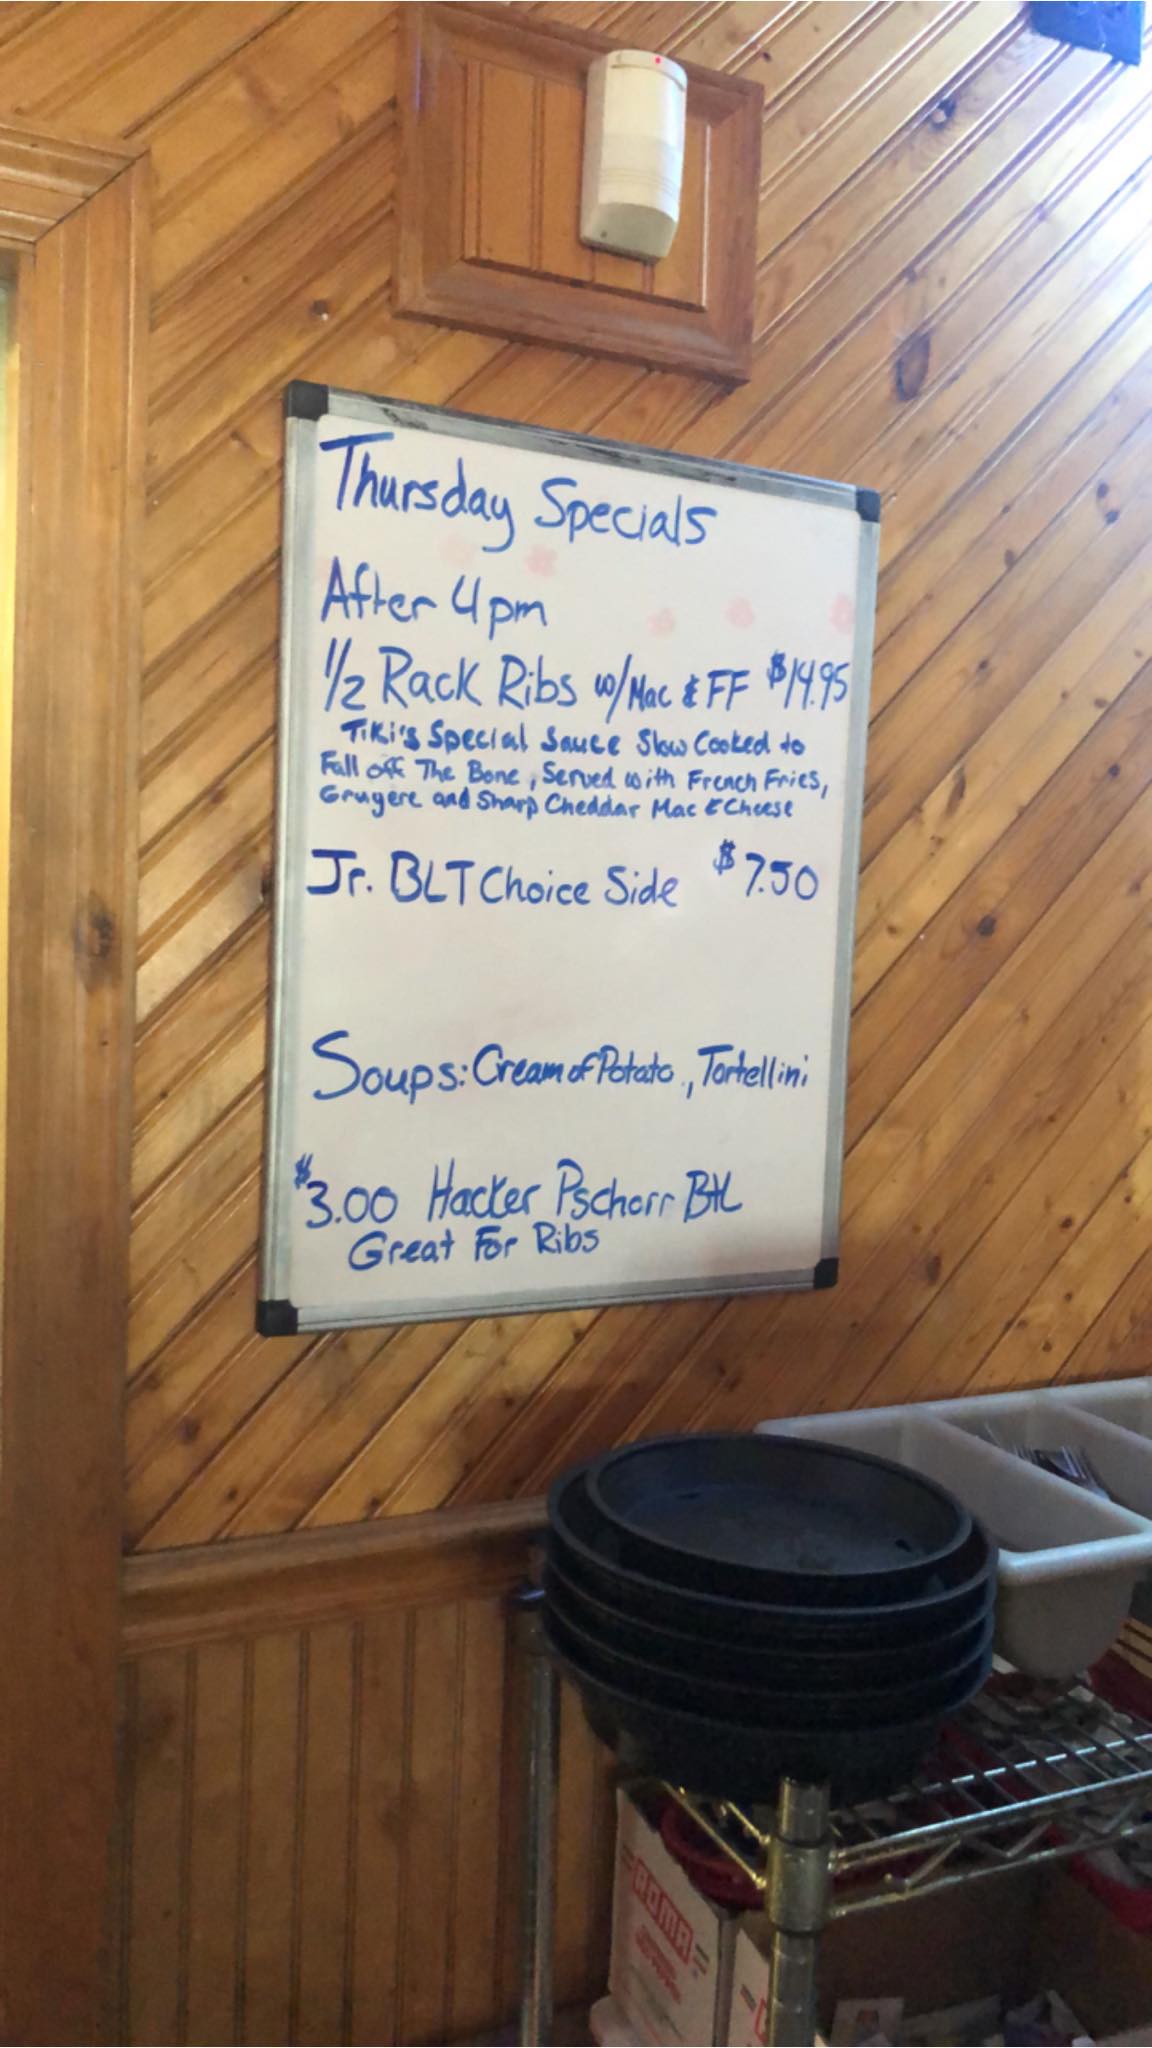 Thursday Specials
After 4pm
1/2 Rack Ribs w/Mac & FF $14.95
Tiki's Special Sauce Slow Cooked to
Fall off The Bone, Served with French Fries,
Gruyere and Sharp Cheddar Mac & Cheese
Jr. BLT Choice Side $7.50
Soups: Cream of Potato, Tortellini
$3.00 Hacker Pschorr Btl
Great For Ribs
ROMA